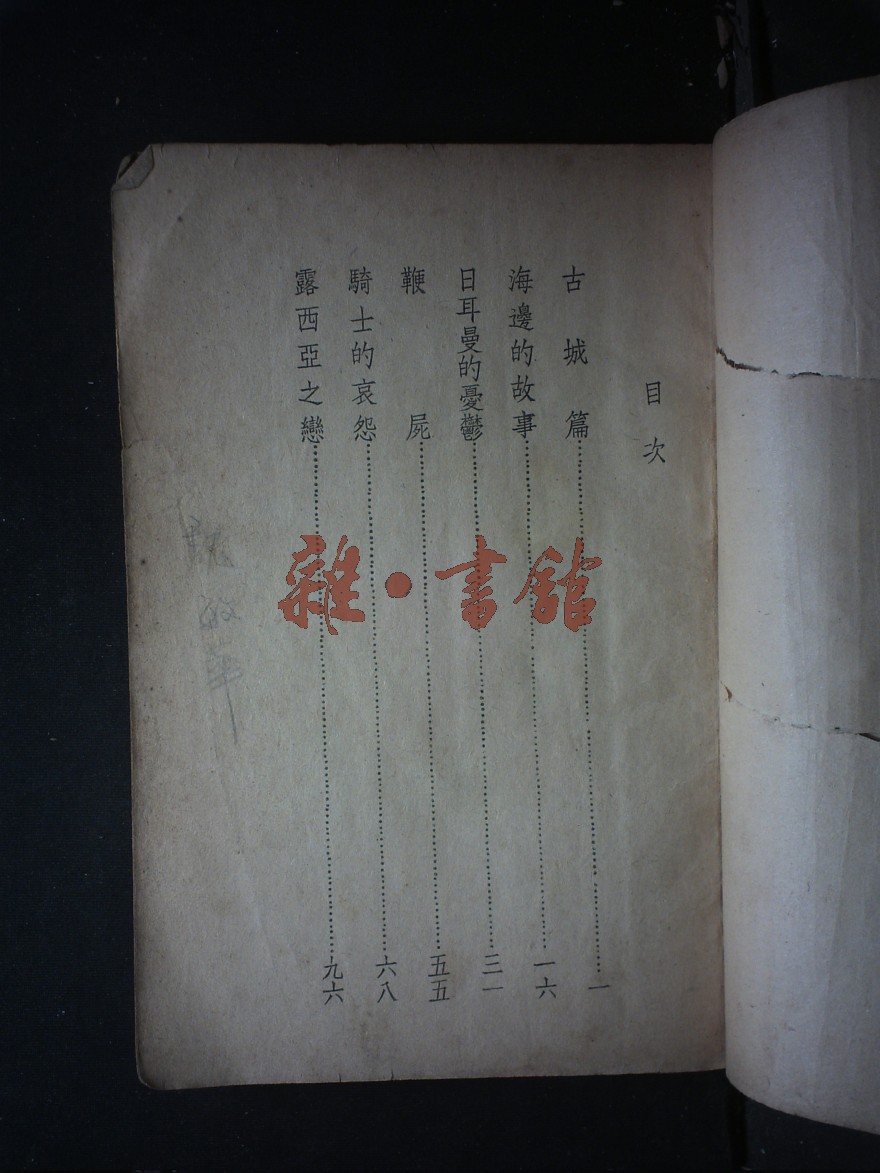 目次
古城篇一
海邊的故事一六
日耳曼的憂鬱三一
鞭屍五五
騎士的哀怨六八
露西亞之戀九六
雜·書館